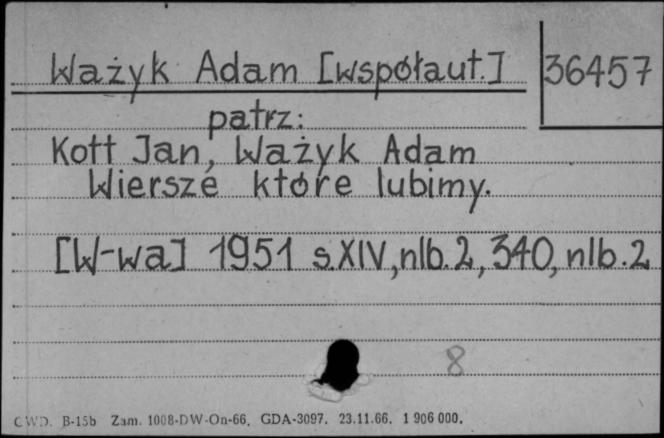 Ważyk Adam [współaut.] 36457
patrz:
Kott Jan, Ważyk Adam
Wiersze które lubimy.
[W-wa] 1951 s.XIV, nlb.2, 340, nlb.2
8
CWD. B-15b Zam. 1008-DW-On-66. GDA-3097. 23.11.66. 1 906 000.